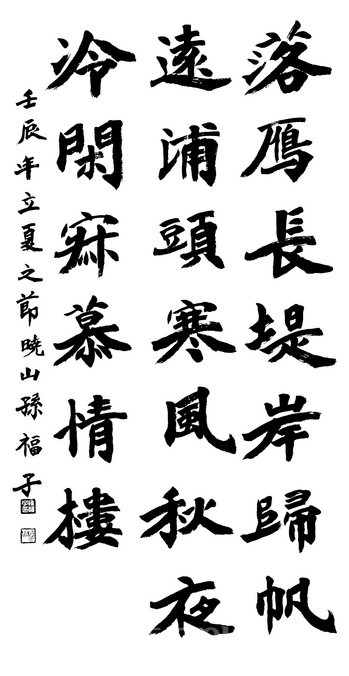 落鴈長堤岸歸帆
遠浦頭寒風秋夜
冷閑寂慕情樓
壬辰年立夏之節曉山孫福子